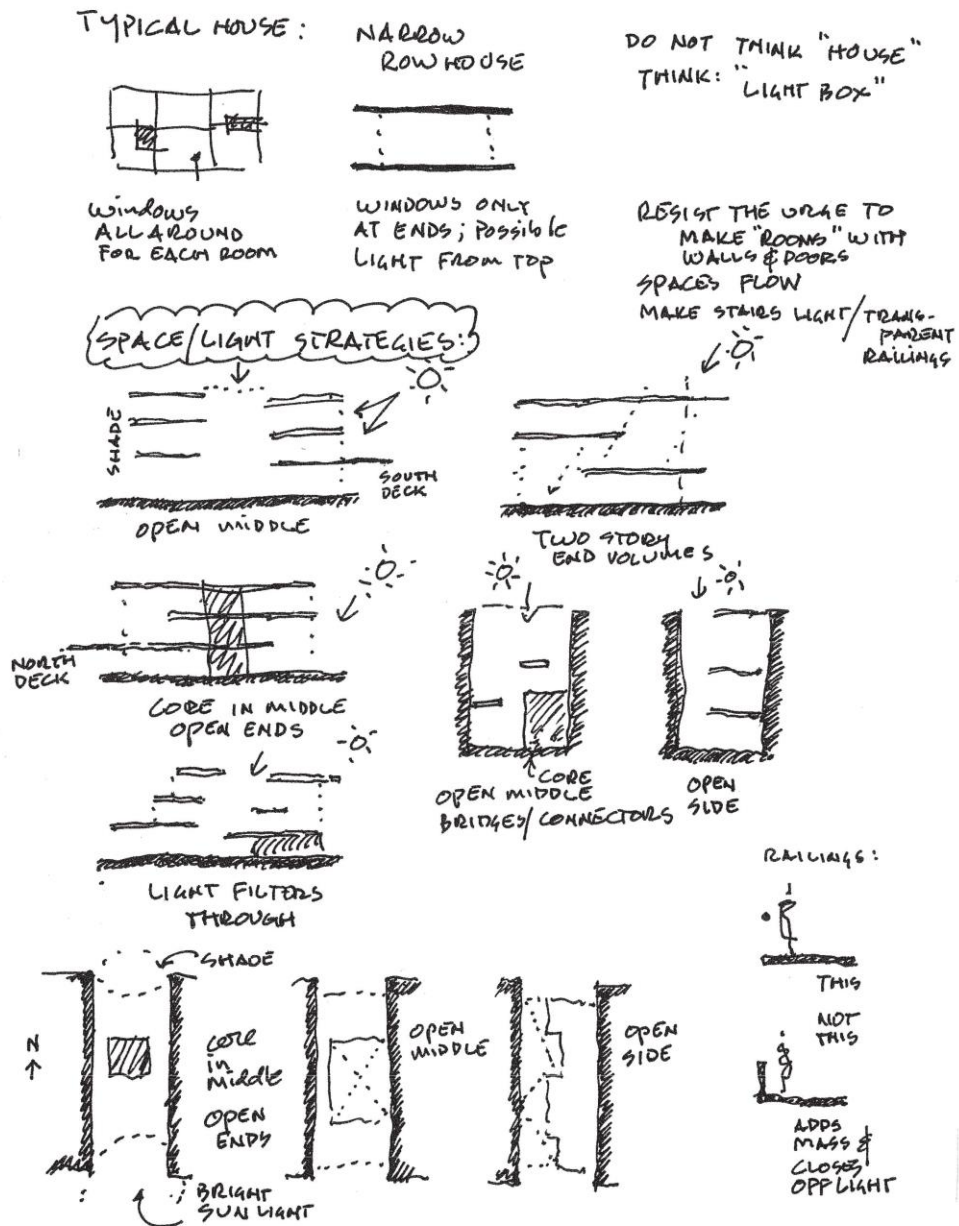 TYPICAL HOUSE:
WINDOWS
ALL AROUND
FOR EACH ROOM
NARROW
ROWHOUSE
WINDOWS ONLY
AT ENDS; POSSIBLE
LIGHT FROM TOP
DO NOT THINK "HOUSE"
THINK: "LIGHT BOX"
RESIST THE URGE TO
MAKE "ROOMS" WITH
WALLS & DOORS
SPACES FLOW
MAKE STAIRS LIGHT/TRANS-
PARENT
RAILINGS
SPACE/LIGHT STRATEGIES:
SHADE
SOUTH
DECK
OPEN MIDDLE
TWO STORY
END VOLUMES
NORTH
DECK
CORE IN MIDDLE
OPEN ENDS
CORE
OPEN MIDDLE
BRIDGES/CONNECTORS
OPEN
SIDE
LIGHT FILTERS
THROUGH
RAILINGS:
THIS
NOT
THIS
ADDS
MASS &
CLOSES
OFF LIGHT
SHADE
N
CORE
IN
MIDDLE
OPEN
ENDS
BRIGHT
SUN LIGHT
OPEN
MIDDLE
OPEN
SIDE